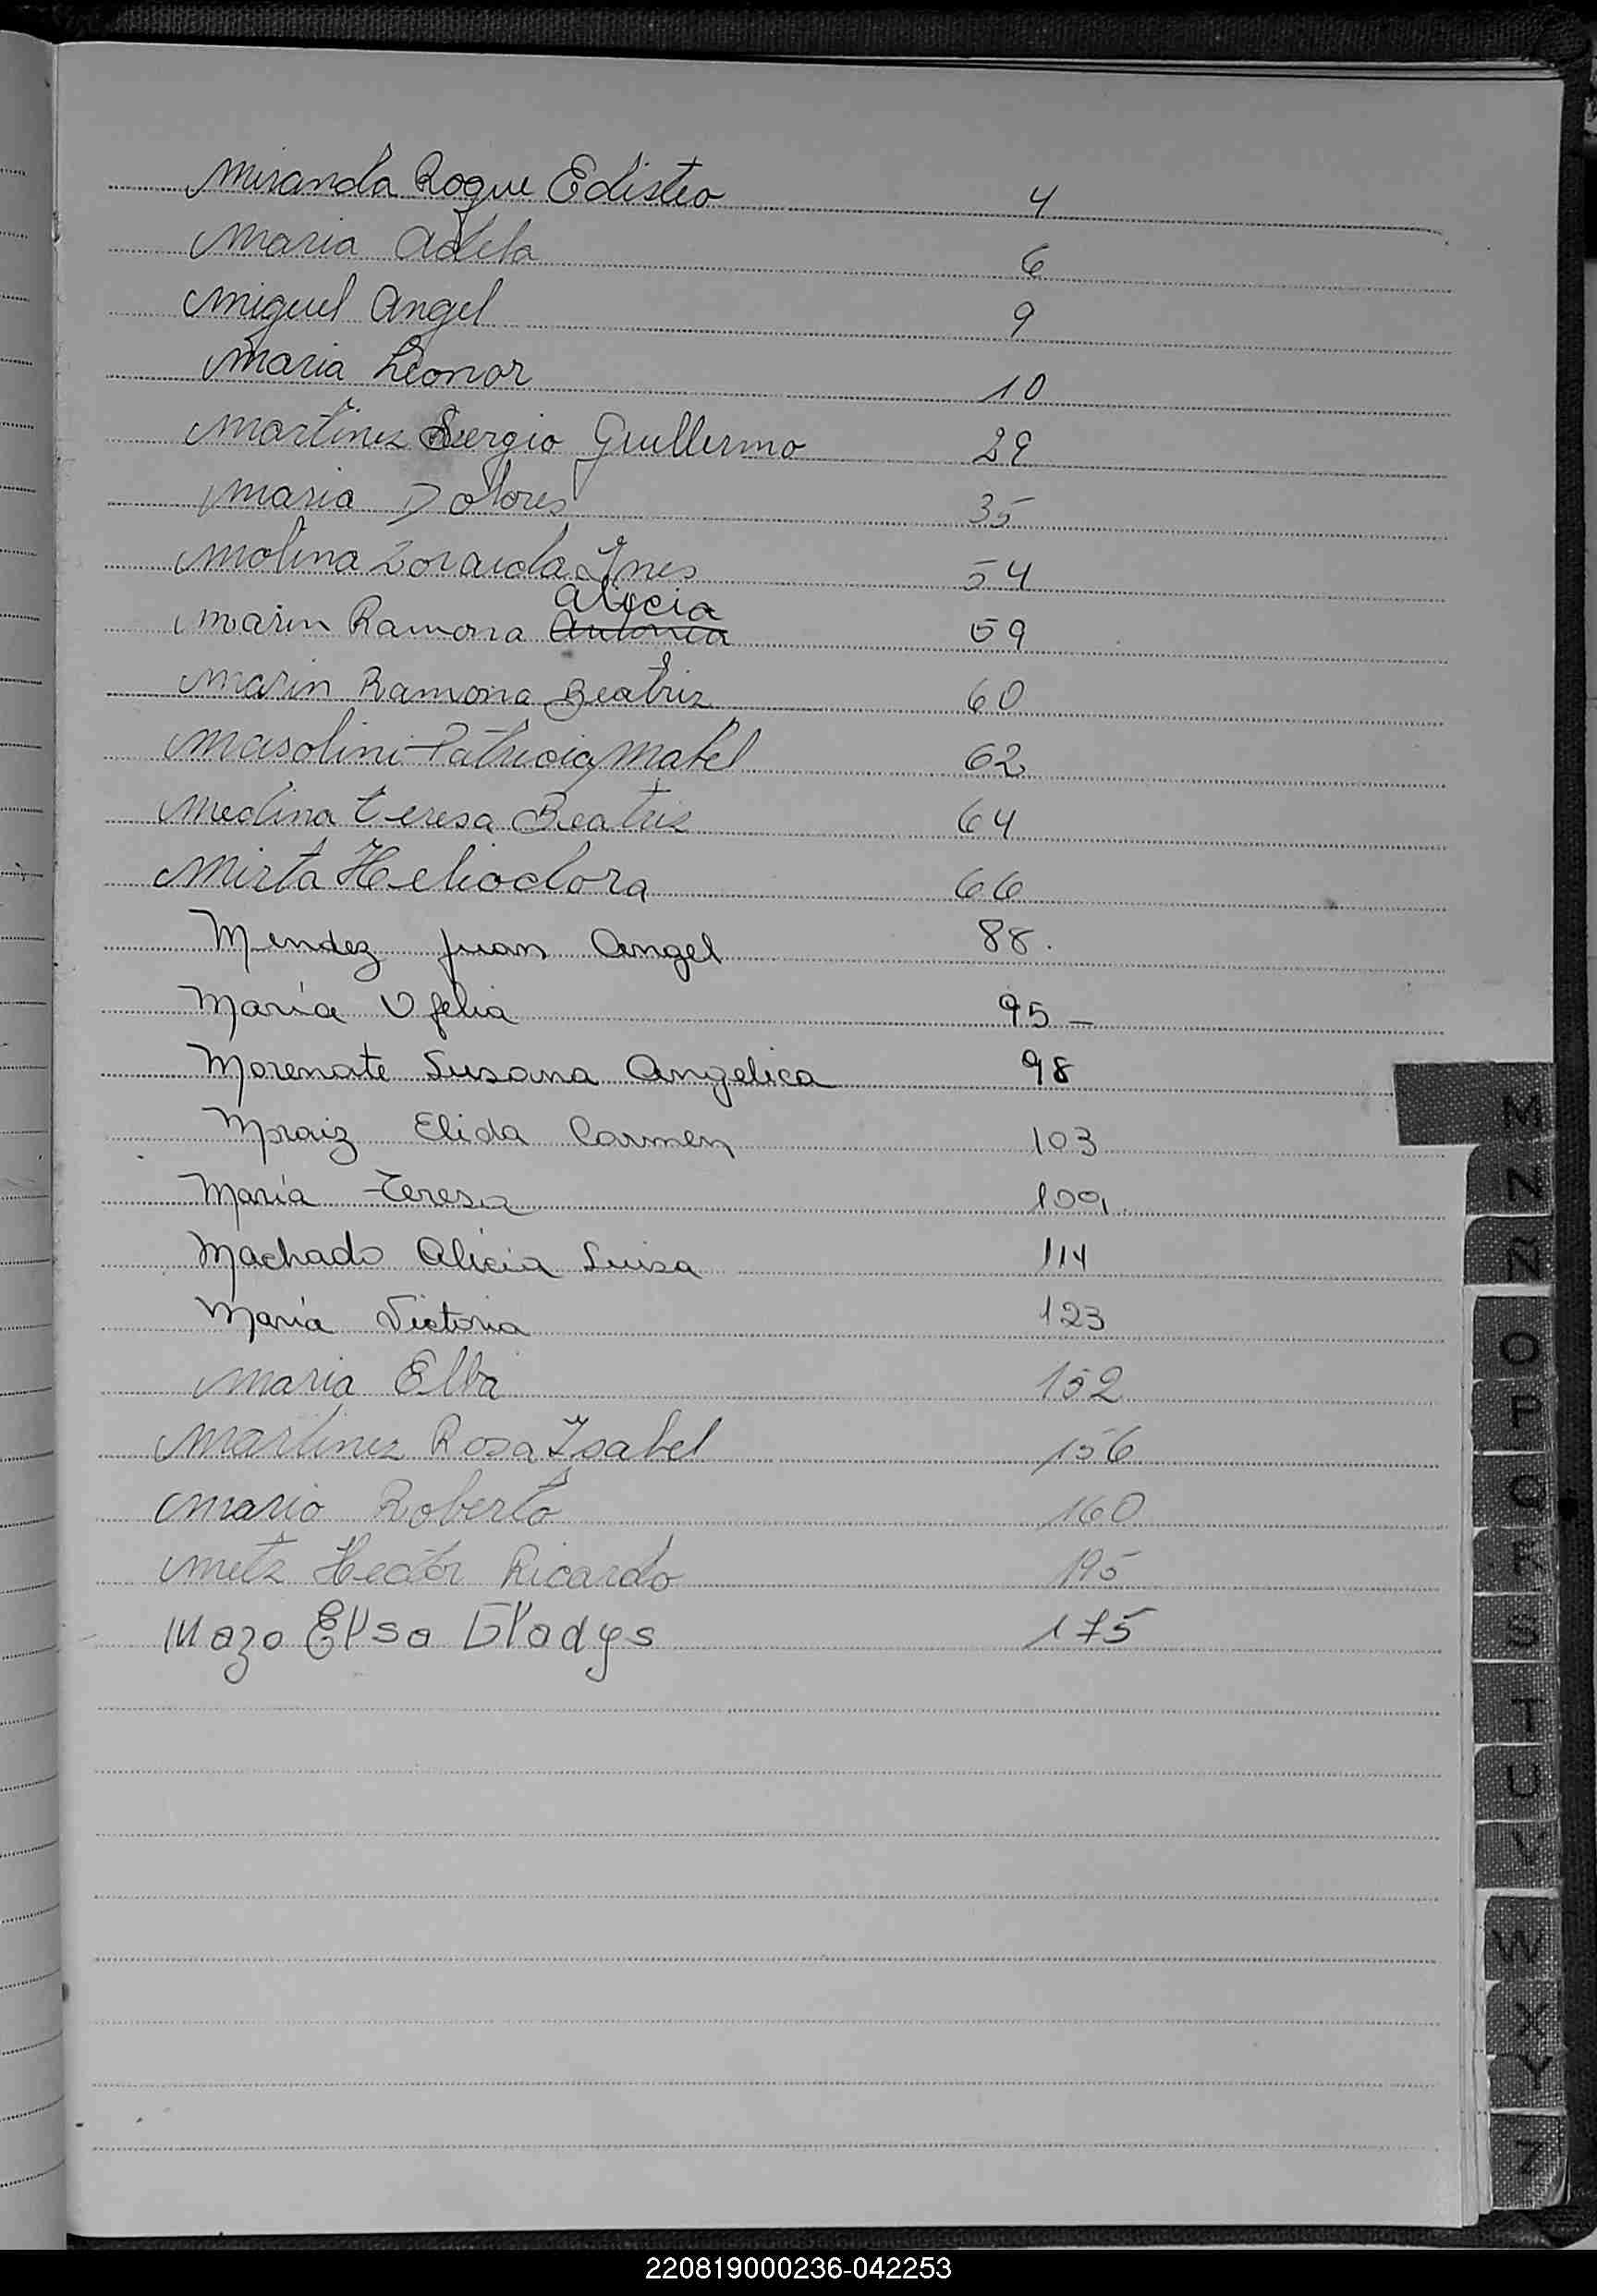 Miranda Roque Edisteo 4
Maria Adela 6
Miguel Angel 9
Maria Leonor 10
Martinez Sergio Guillermo 29
Maria Dolores 35
Molina Zoraida Ines 54
Alicia
Marin Ramona Antonia 59
Marin Ramona Beatriz 60
Masolini Patricia Mabel 62
Medina Teresa Beatriz 64
Mirta Heliodora 66
Mendez Juan Angel 88.
María Ofelia 95 -
Morenate Susana Angelica 98
Moraiz Elida Carmen 103
María Teresa 109
Machado Alicia Luisa 114
María Victoria 123
Maria Elba 152
Martinez Rosa Isabel 156
Mario Roberto 160
Metz Hector Ricardo 195
Mazo Elsa Gladys 175
M
N
Ñ
O
P
Q
R
S
T
U
V
W
X
Y
Z
220819000236-042253